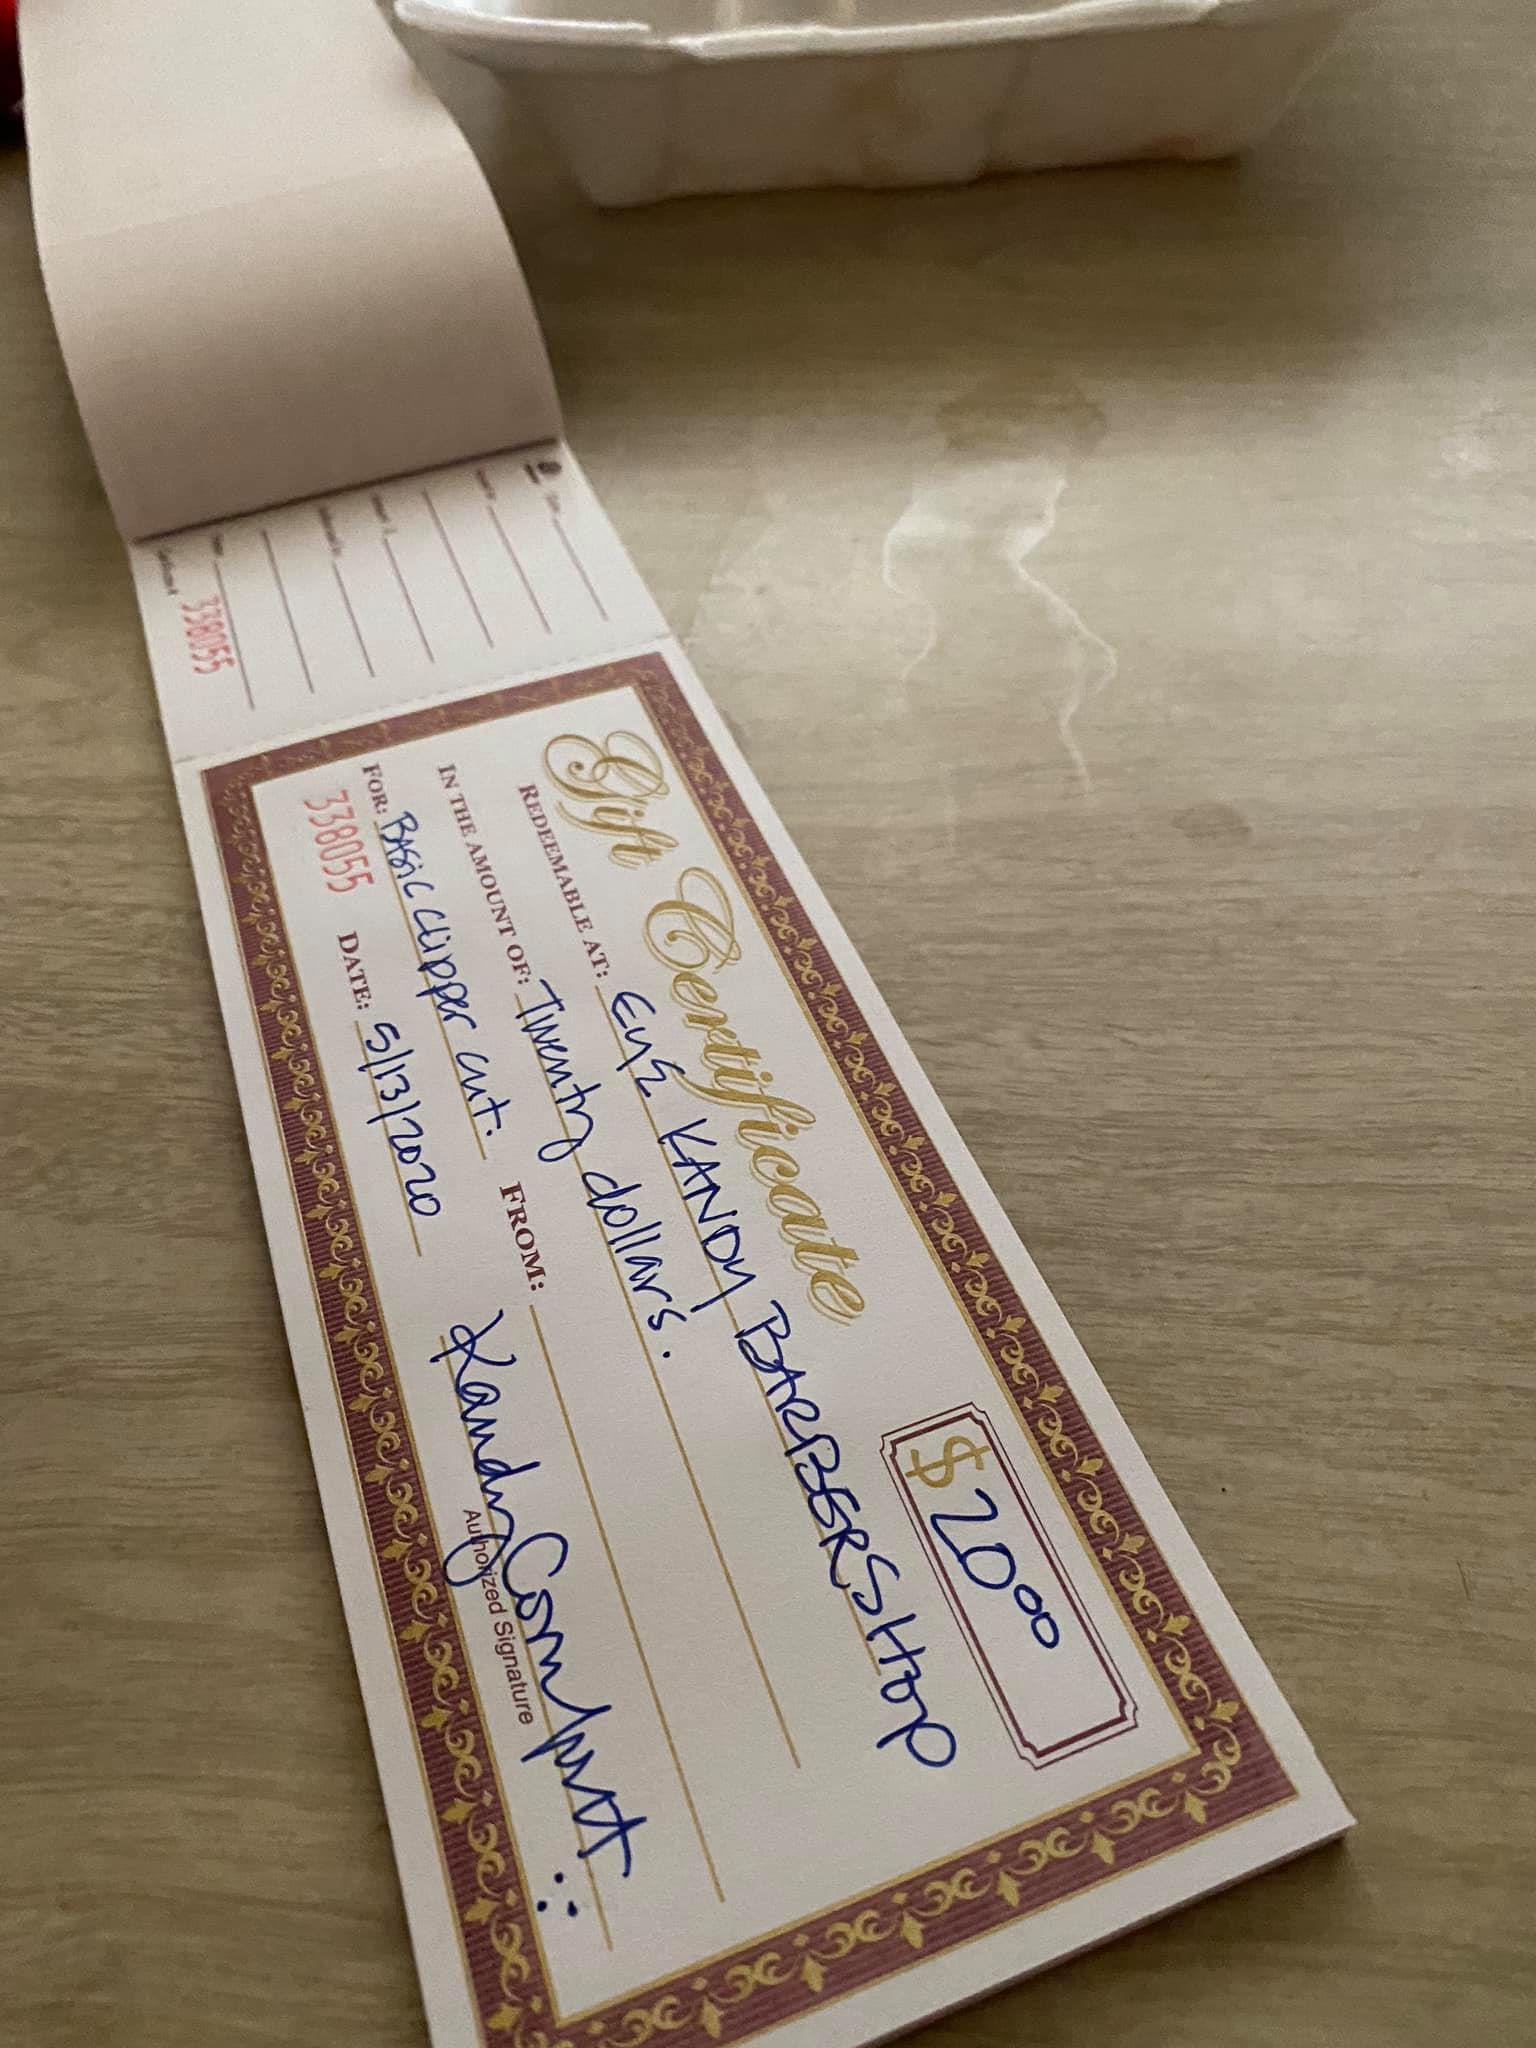 338055
Gift Certificate
$ 20.00
REDEEMABLE AT: EyE KANDy BARBERSHOP
IN THE AMOUNT OF: Twenty dollars.
FOR: BASiC Clipper cut. FROM:
338055 DATE: 5/13/2020
Authorized Signature